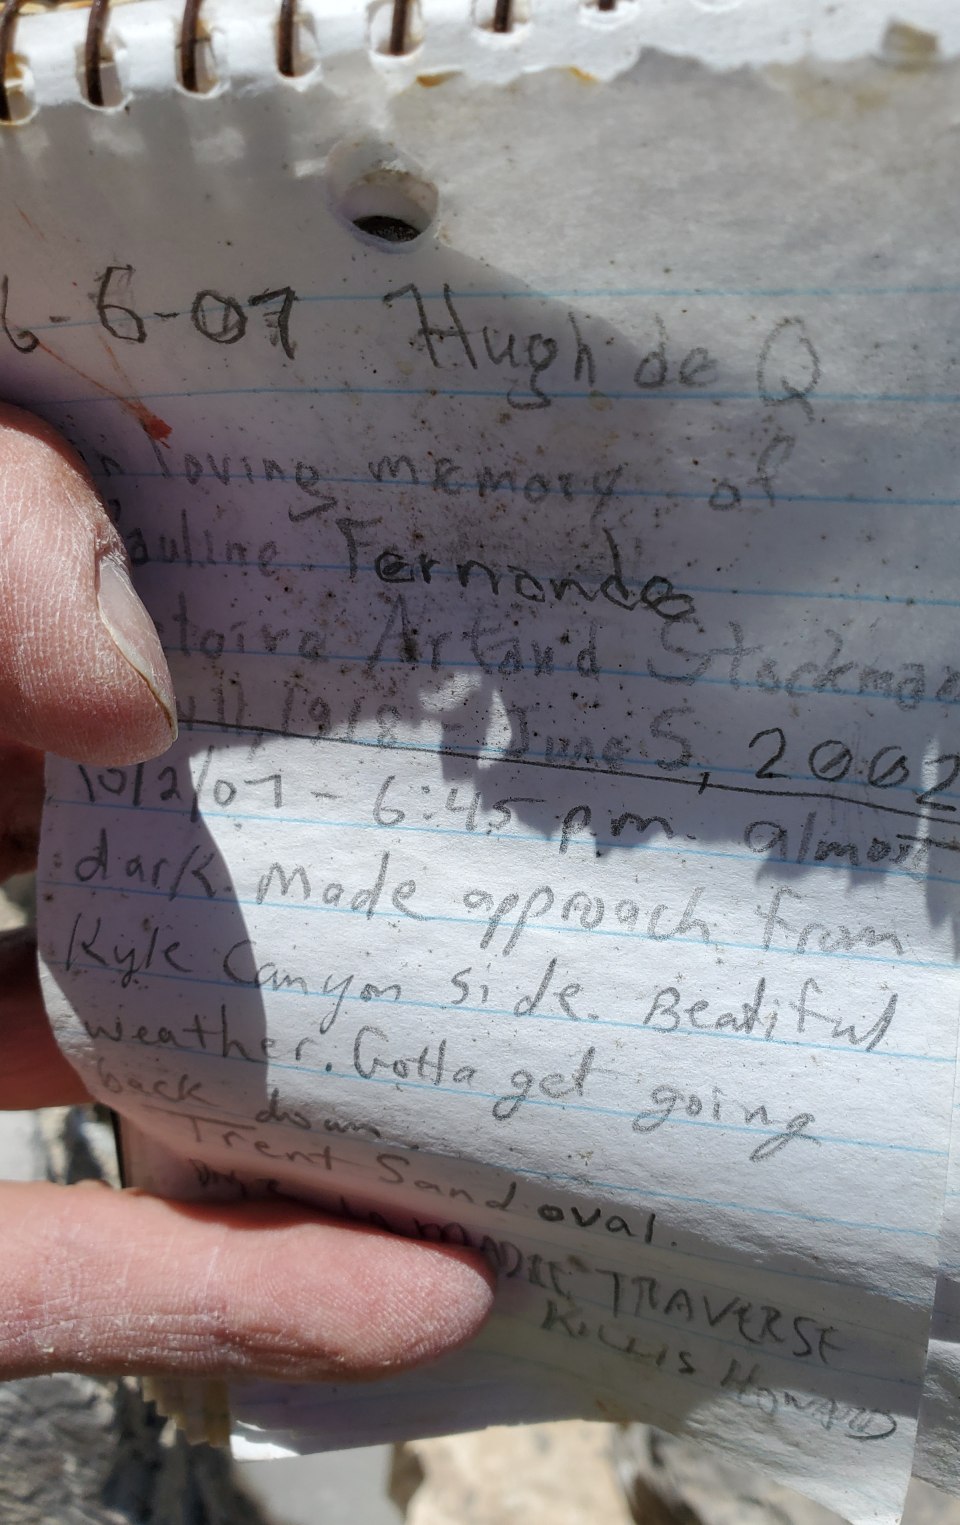 6-5-07 Hugh de Q
loving memory of
Fernande
Artaud Stockman
1918 - June 5, 2002
10/2/07 - 6:45 pm. almost
dark. Made approach from
Kyle Canyon side. Beatiful
weather. Gotta get going
back down.
Trent Sandoval.
MADRE TRAVERSE
Killis Howard